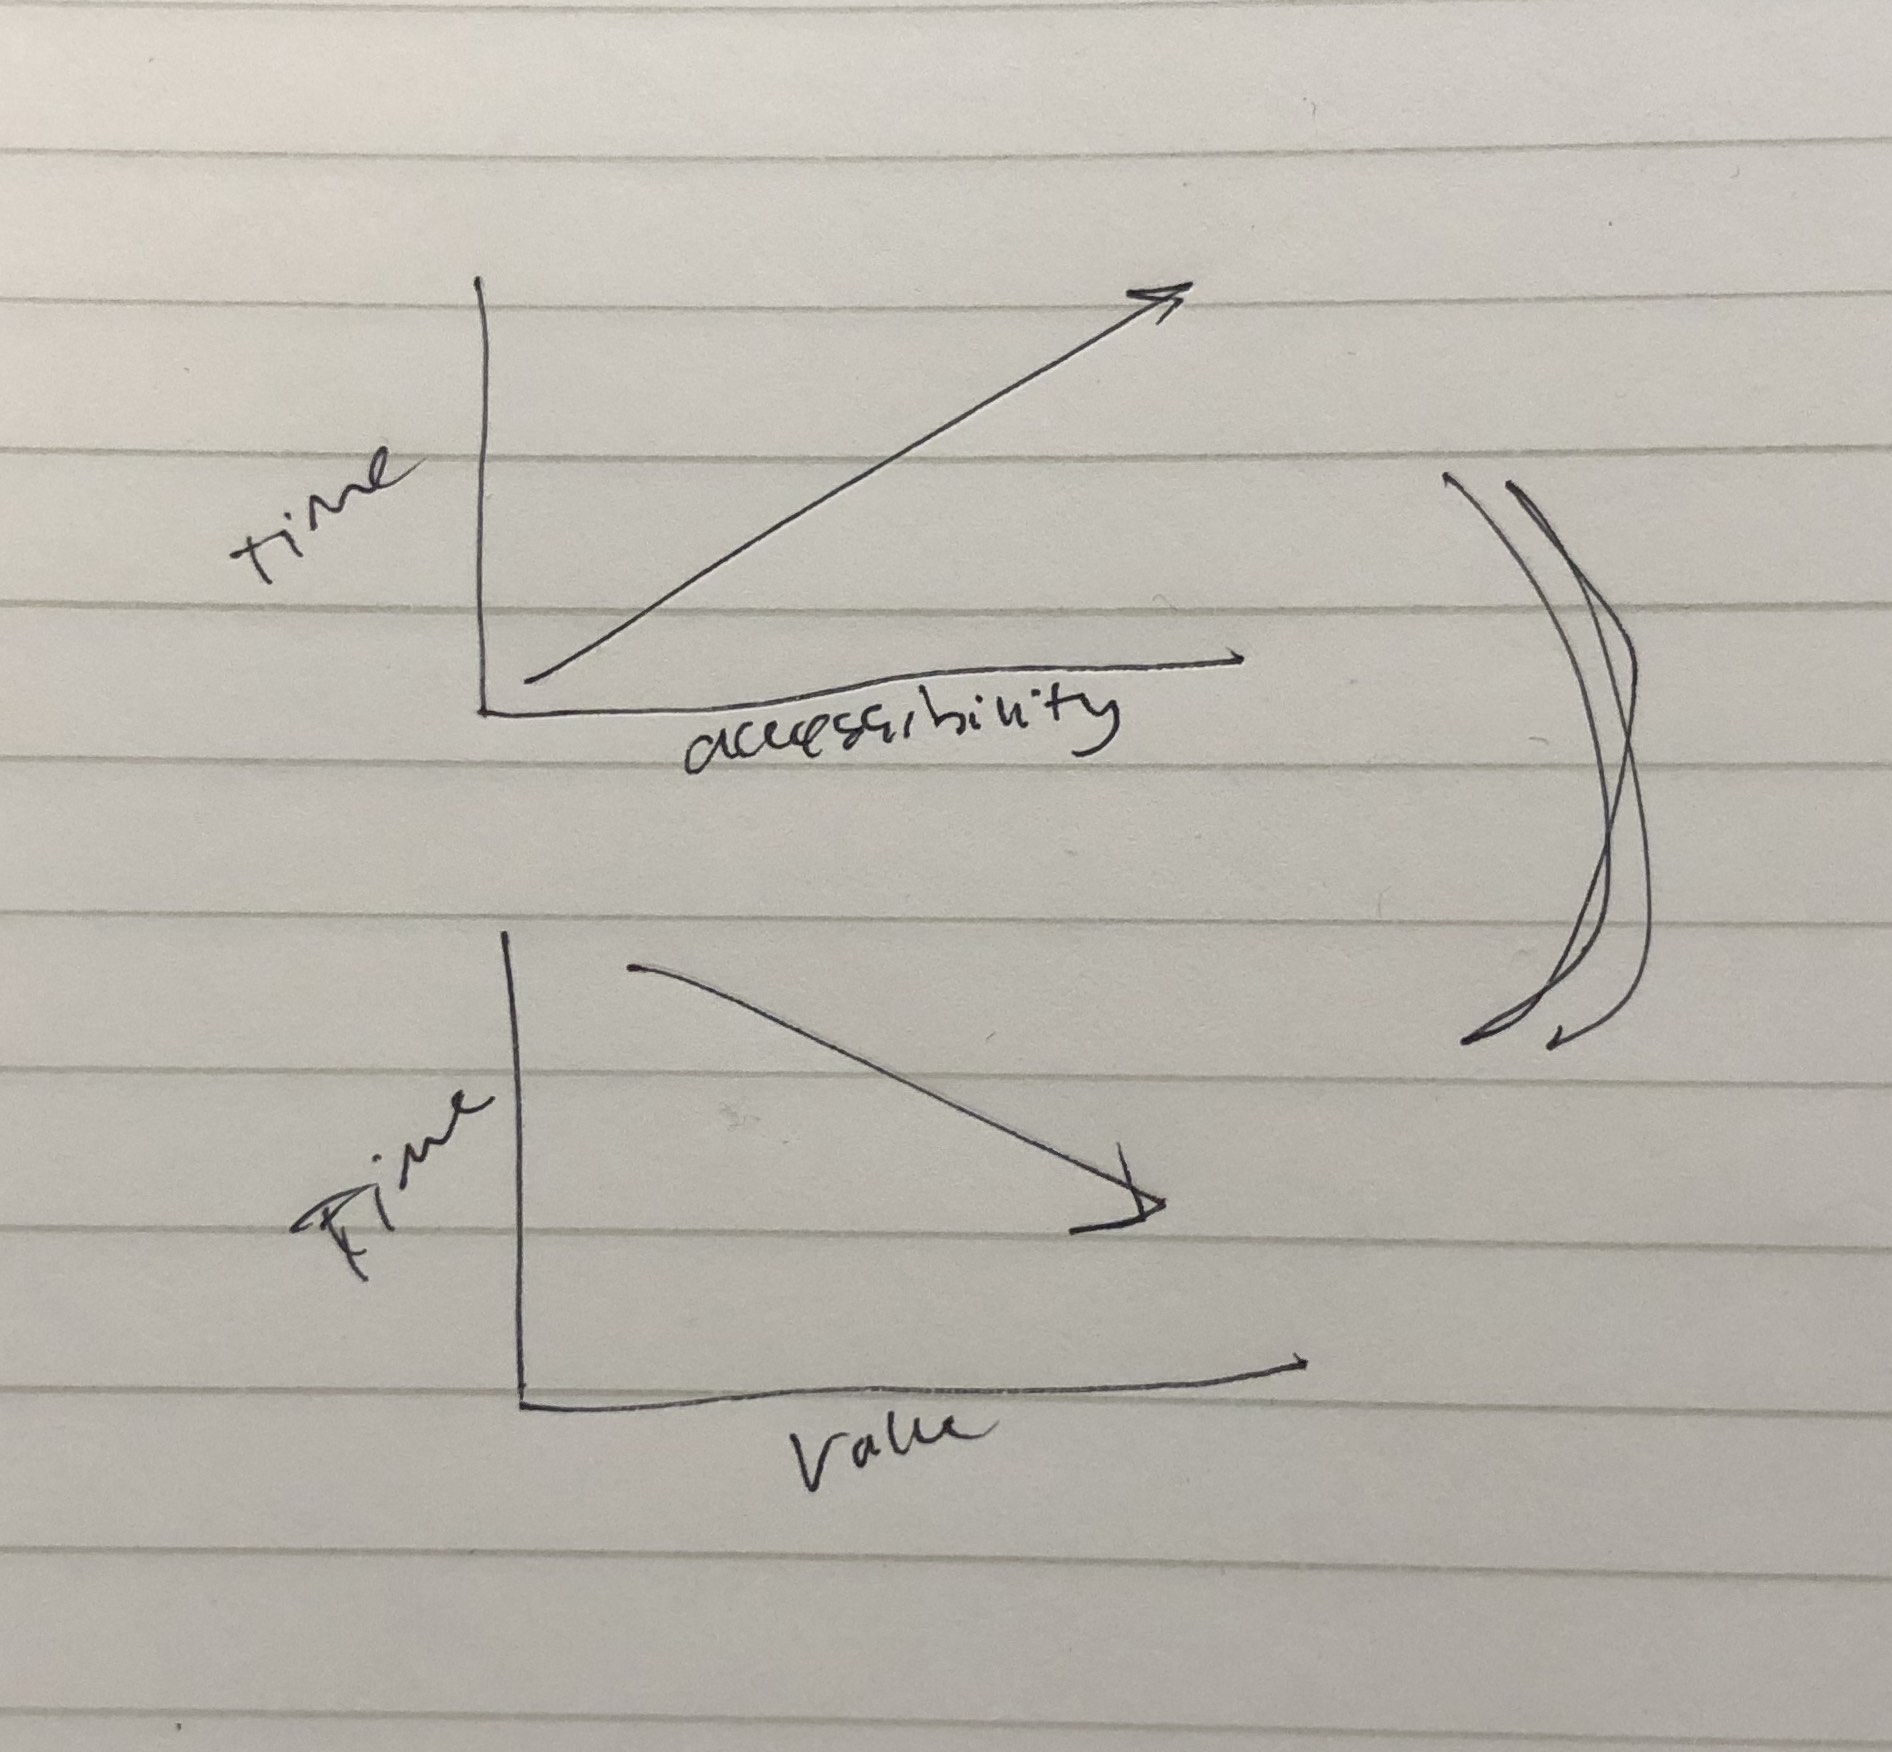 time
accessibility
Time
Value